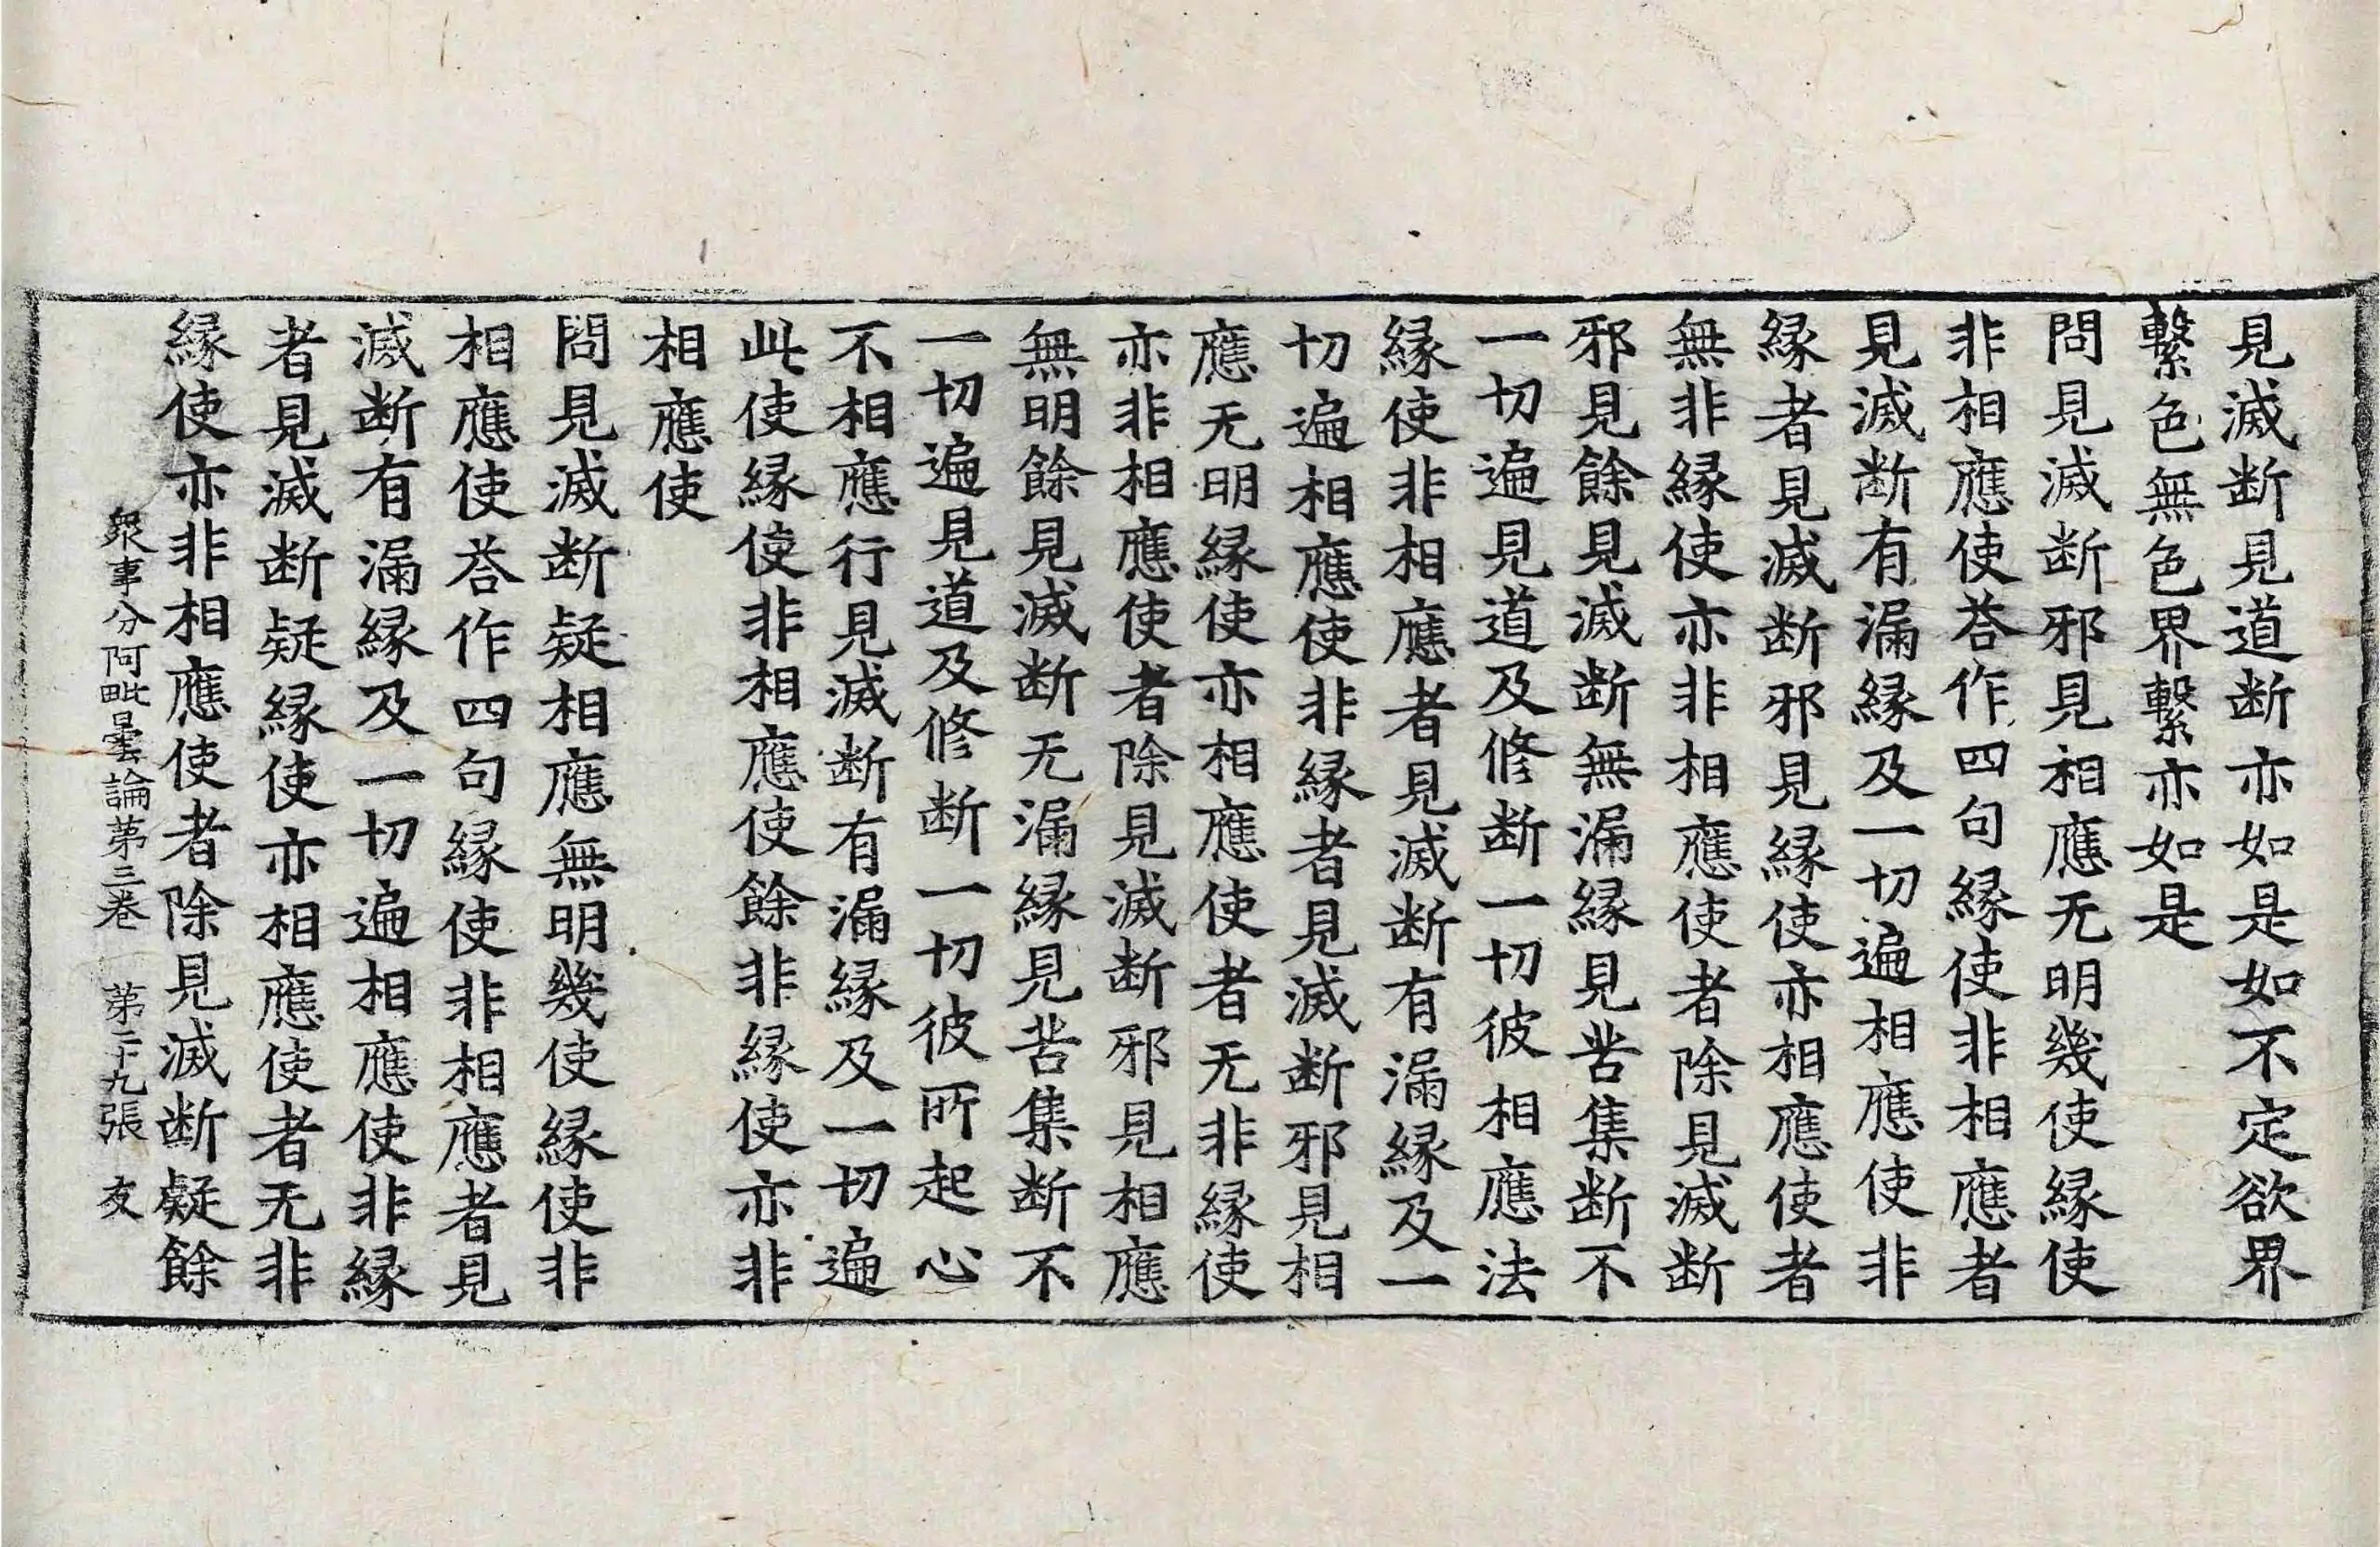 見滅断見道断亦如是如不定欲界
繫色無色界繫亦如是
問見滅断邪見相應无明幾使緣使
非相應使荅作四句緣使非相應者
見滅断有漏緣及一切遍相應使非
緣者見滅断邪見緣使亦相應使者
無非緣使亦非相應使者除見滅断
邪見餘見滅断無漏緣見苦集断不
一切遍見道及修断一切彼相應法
緣使非相應者見滅断有漏緣及一
切遍相應使非緣者見滅断邪見相
應无明緣使亦相應使者无非緣使
亦非相應使者除見滅断邪見相應
無明餘見滅断无漏緣見苦集断不
一切遍見道及修断一切彼所起心
不相應行見滅断有漏緣及一切遍
此使緣使非相應使餘非緣使亦非
相應使
問見滅断疑相應無明幾使緣使非
相應使荅作四句緣使非相應者見
滅断有漏緣及一切遍相應使非緣
者見滅断疑緣使亦相應使者无非
緣使亦非相應使者除見滅断疑餘
衆事分阿毗曇論第三卷　第二十九張　友